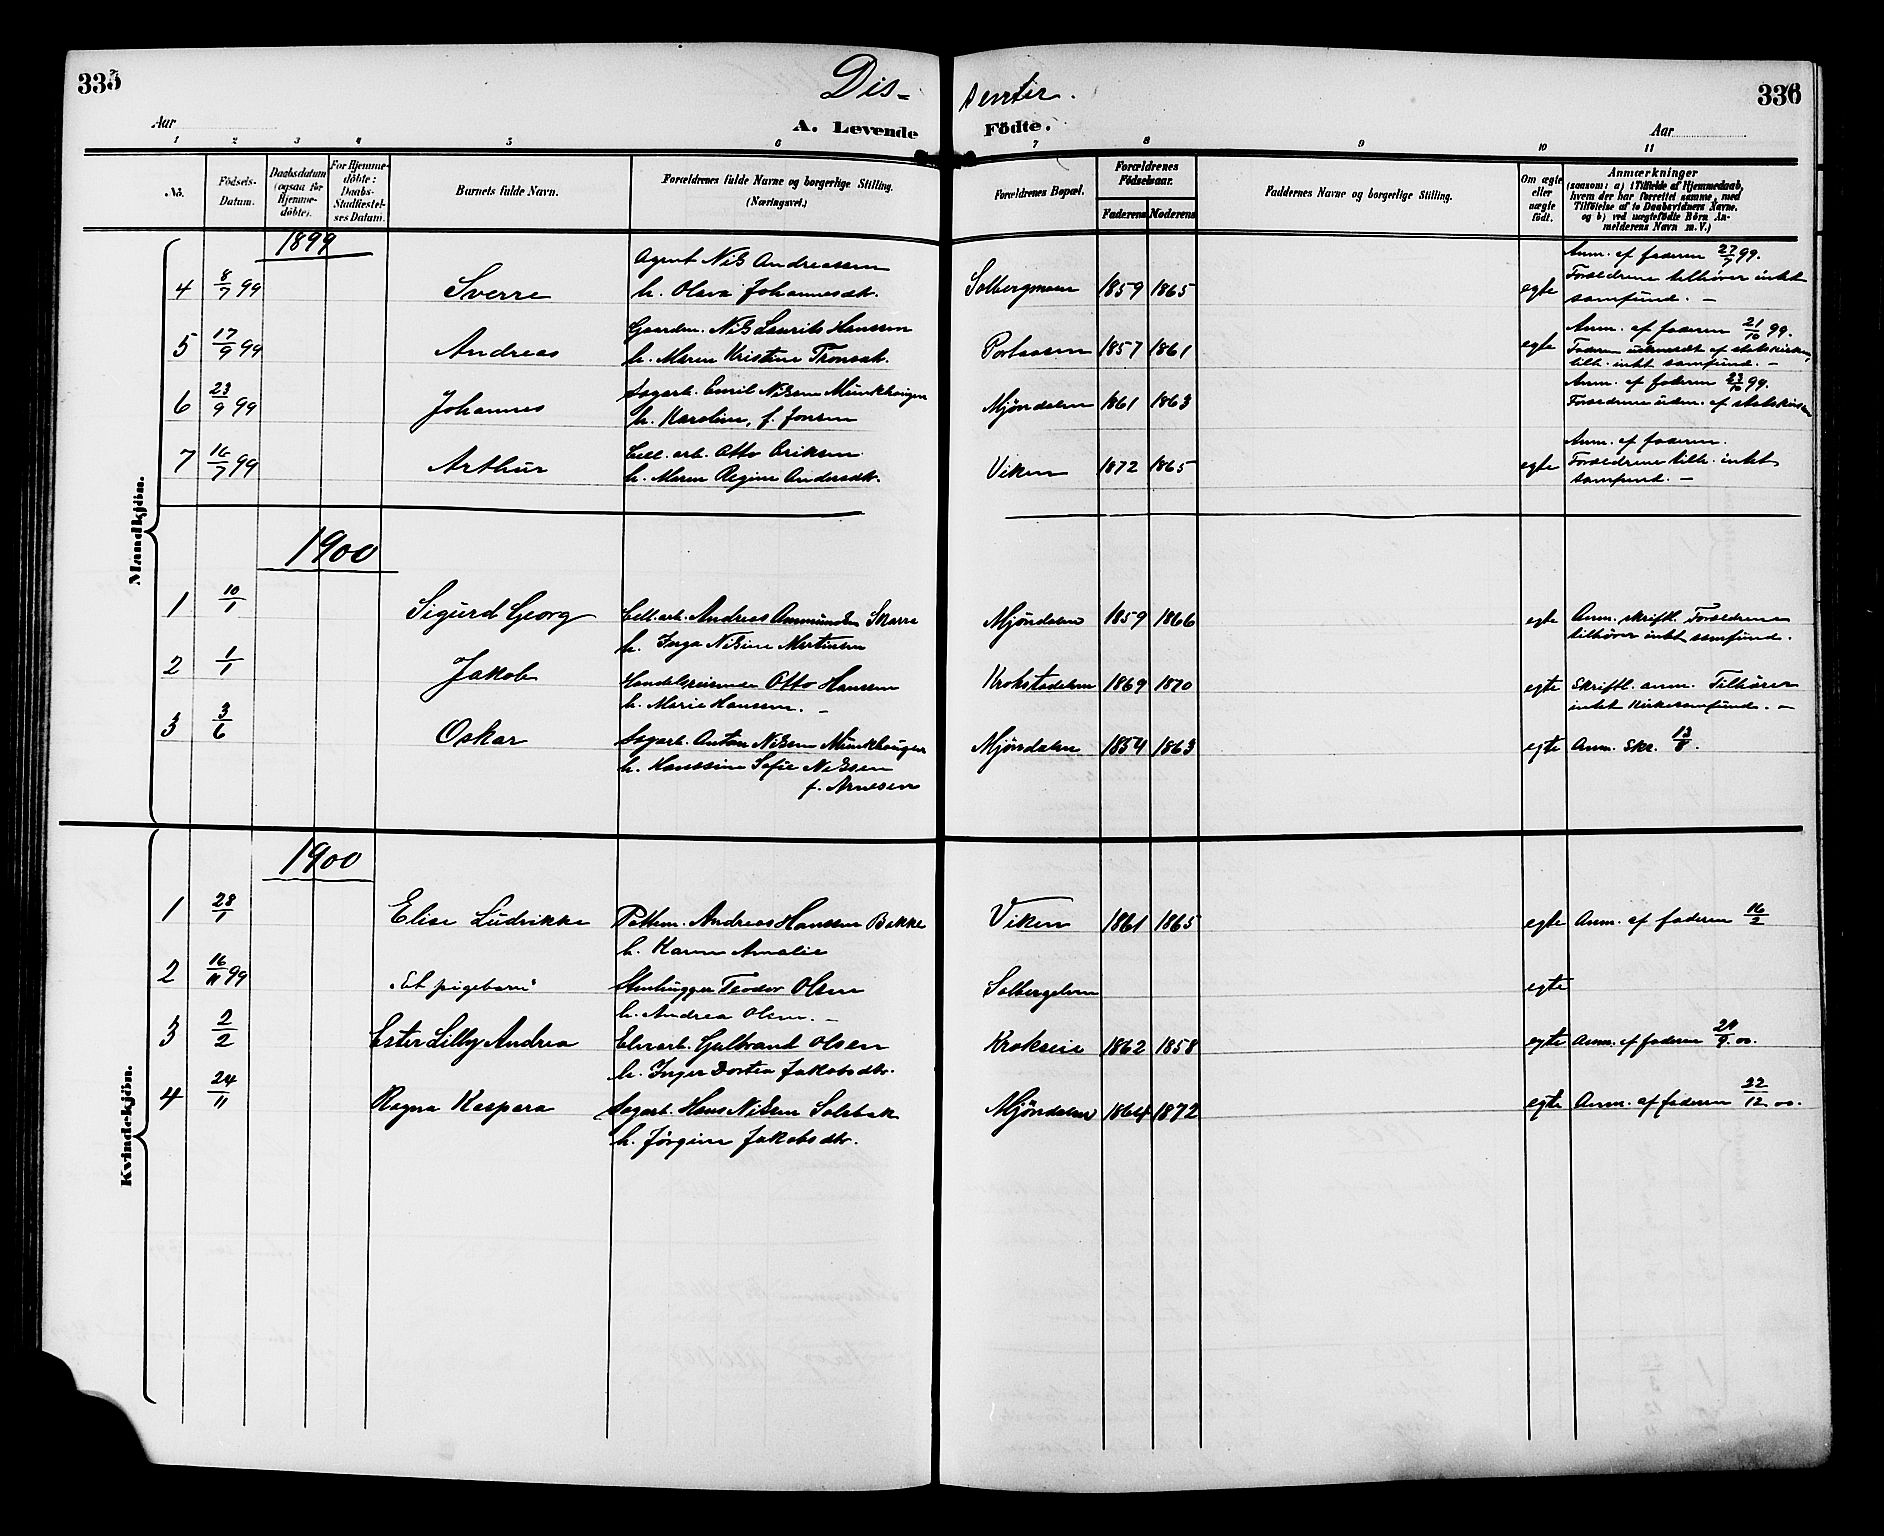 335
Dis-
senter.
336
Aar
A. Levende
Födte.
Aar
1 2 3 4 5 6 7 8 9 10 11
No.
Födsels-
Datum.
Daabsdatum
(ogsaa for
Hjemme-
döbte).
For Hjemme-
döbte:
Daabs-
Stadfæstel-
ses Datum.
Barnets fulde Navn.
Forældrenes fulde Navne og borgerlige Stilling.
(Næringsvei.)
Forældrenes Bopæl.
Forældrenes
Födselsaar.
Faderens Moderens
Faddernes Navne og borgerlige Stilling.
Om ægte
eller
uægte
født.
Anmærkninger
(saasom: a) i Tilfælde af Hjemmedaab,
hvem der har forrettet samme, med
Tilföielse af to Daabsvidners Navne.
og b) ved uægtefödte Börn An-
melderens Navn m. V.)
Mandkjön.
1899
4 8/7 99 Sverre
Agent Nils Andreassen
h. Olava Johannesdt.
Solbergmoen 1859 1865 egte
Anm. af faderen 27/7 99.
Forældrene tilhører intet
samfund. —
5 17/9 99 Andreas
Gaardm. Nils Laurits Hanssen
h. Maren Kristine Tronsdt.
Portaasen 1857 1861 egte
Anm. af faderen 21/10 99.
Faderen udmeldt af statskirken,
tilh. intet samfund. —
6 23/9 99 Johannes
Sagarb. Emil Nilsen Munkhaugen
h. Karoline, f. Jonsen
Mjöndalen 1861 1863
Anm. af faderen 23/10 99.
Forældrene udm. af statskirken
7 16/7 99 Arthur
Cell. arb. Otto Eriksen
h. Maren Regine Andersdt.
Viken 1872 1865 egte
Anm. af faderen.
Forældrene tilh. intet
samfund. —
1900
1 10/1 Sigurd Georg
Cell. arb. Andreas Ammundsen Skarre
h. Inga Nilsine Martinsen
Mjöndalen 1859 1866 egte
Anm. skriftl. Forældrene
tilhører intet samfund.
2 1/1 Jakob
Handelsreisende Otto Hanssen
h. Marie Hanssen. —
Krokstadelven 1869 1870 egte
Skriftl. anm. Tilhører
intet Kirkesamfund. —
3 3/6 Oskar
Sagarb. Anton Nilsen Munkhaugen
h. Hanssine Sofie Nilssen
f. Arnesen
Mjöndalen 1854 1863 egte
Anm. Skr. 13/8.
Kvindekjön.
1900
1 28/1 Elise Ludvikke
Pottem. Andreas Hanssen Bakke
h. Karen Amalie
Viken 1861 1865 egte
Anm. af faderen 16/2
2 16/11 99 "Et pigebarn"
Stenhugger Teodor Olsen
h. Andrea Olsen. —
Solbergelven egte
3 2/2 Ester Lilly Andrea
Elvearb. Gulbrand Olsen
h. Inger Dortea Jakobsdtr.
Krokseie 1862 1858 egte
Anm. af faderen 00.
4 24/11 Ragna Kaspara
Sagarb. Hans Nilsen Solebak
h. Jørgine Jakobsdtr.
Mjöndalen 1864 1872 egte
Anm. af faderen 22/12 00.